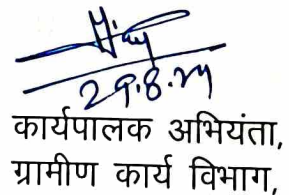 29.8.24
कार्यपालक अभियंता,
ग्रामीण कार्य विभाग,